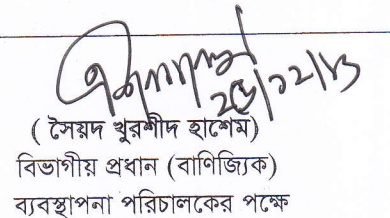 ( সৈয়দ খুরশীদ হাশেম)
বিভাগীয় প্রধান (বাণিজ্যিক)
ব্যবস্থাপনা পরিচালকের পক্ষে